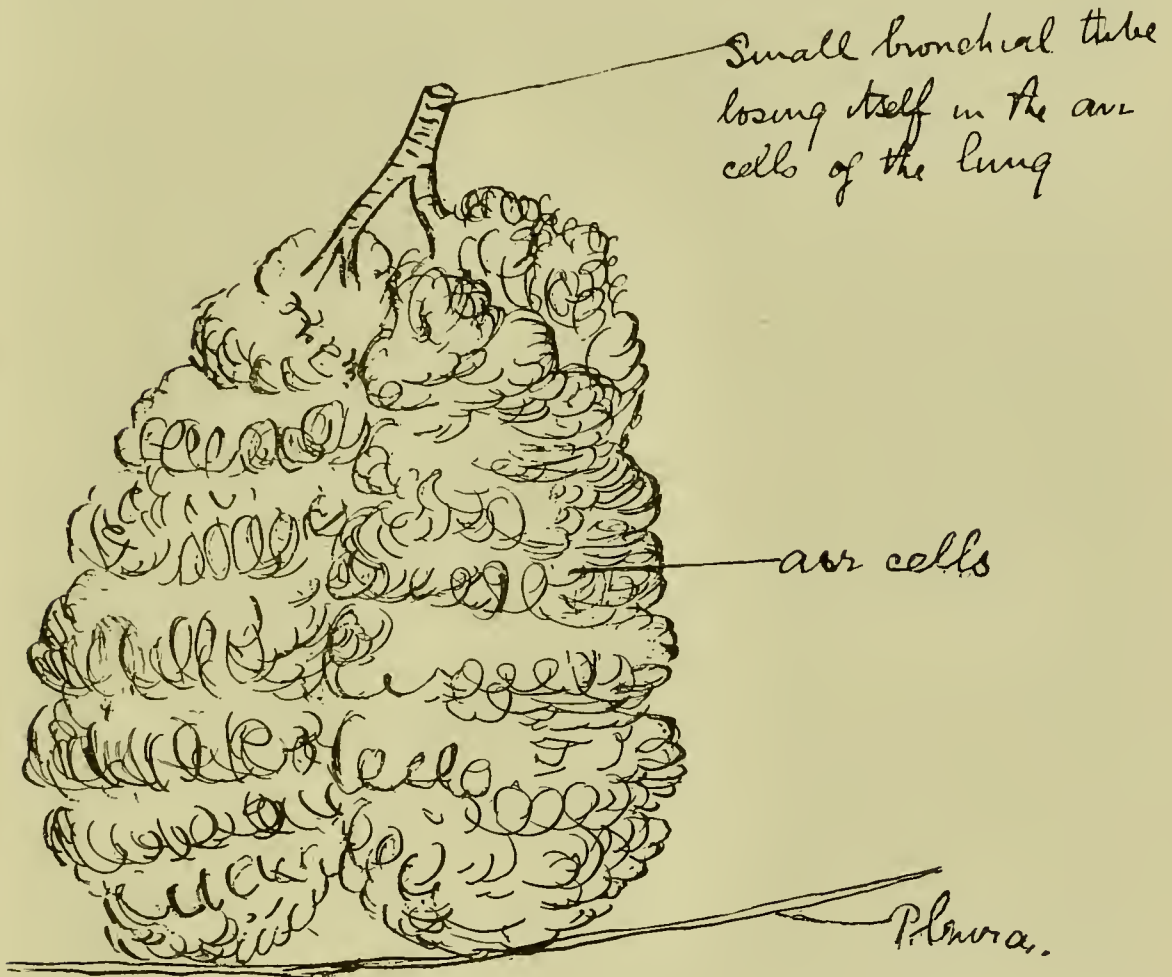 Small bronchial tube
losing itself in the air
cells of the lung
air cells
Pleura.